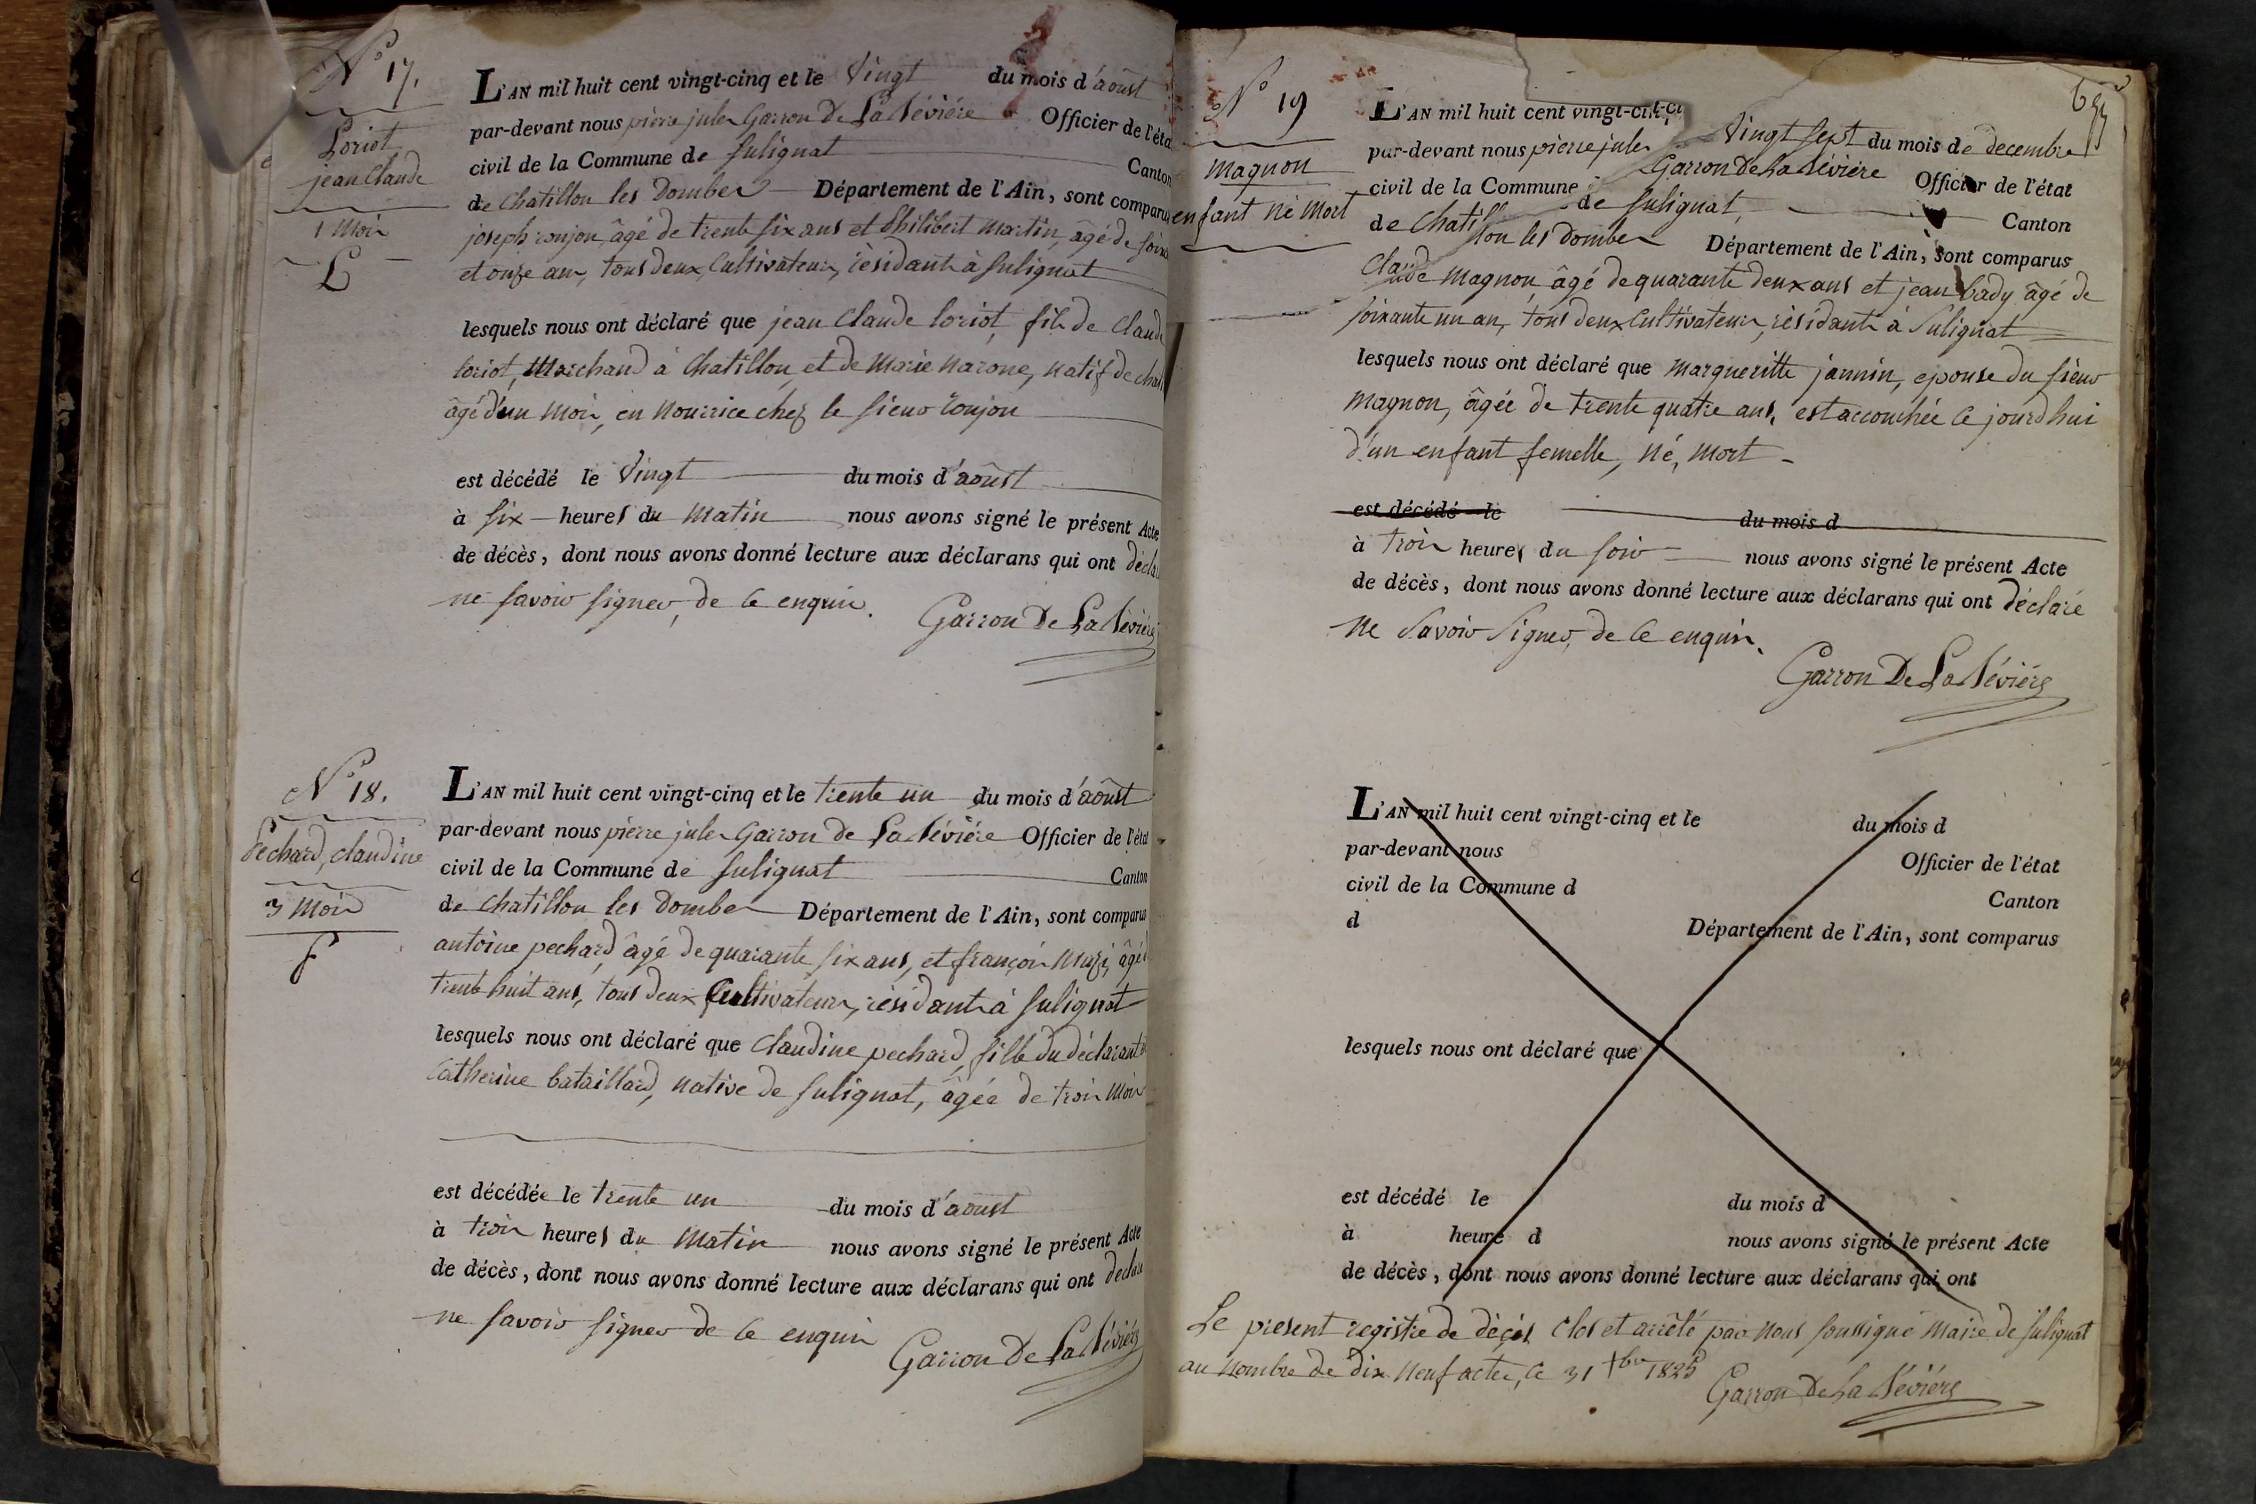 N° 17.
Loriot
jean Claude
1 Mois
L
L'AN mil huit cent vingt-cinq et le vingt du mois d'aoust
par-devant nous pierre jules Garron De La Bévière Officier de l'éta
civil de la Commune de Sulignat Canton
de Chatillon les Dombes Département de l'Ain, sont comparus
joseph roujon, âgé de trente six ans et Philibert Martin, âgé de soixa
et onze ans, tous deux Cultivateurs, résidants à Sulignat
lesquels nous ont déclaré que jean Claude loriot, fils de Claude
loriot, Marchand à Chatillon, et de Marie Narone, natif de chat
âgé d'un mois, en nourrice chez le sieur roujon
est décédé le vingt du mois d'aoust
à six heures du matin nous avons signé le présent Acte
de décès, dont nous avons donné lecture aux déclarans qui ont décla
ne savoir signer, de ce enquis.
Garron De La Bévière
N° 18.
Pechard, claudine
3 Mois
f
L'AN mil huit cent vingt-cinq et le trente un du mois d'aoust
par-devant nous pierre jules Garron de La Bévière Officier de l'état
civil de la Commune de Sulignat Canton
de Chatillon les Dombes Département de l'Ain, sont comparus
antoine pechard, âgé de quarante six ans, et françois âgé d
trente huit ans, tous deux Cultivateurs, résidants à Sulignat
lesquels nous ont déclaré que Claudine pechard, fille du déclarant
Catherine bataillard, native de Sulignat, âgée de trois Mois
est décédée le trente un du mois d'aoust
à trois heures du Matin nous avons signé le présent Acte
de décès, dont nous avons donné lecture aux déclarans qui ont decla
ne savoir signer de ce enquis
Garron De La Bévière
N° 19
Magnon
enfant né Mort
L'AN mil huit cent vingt-cinq vingt sept du mois de decembre
par-devant nous pierre jules Garron De La Bévière Officier de l'état
civil de la Commune de Sulignat, Canton
de Chatillon les Dombes Département de l'Ain, sont comparus
Claude Magnon, âgé de quarante deux ans et jean bady âgé de
soixante un an, tous deux Cultivateurs, résidants à Sulignat
lesquels nous ont déclaré que Margueritte jannin, epouse du sieur
Magnon, âgée de trente quatre ans, est accouchée ce jourd'hui
d'un enfant femelle, né, mort
est décédé le du mois d
à trois heures du soir nous avons signé le présent Acte
de décès, dont nous avons donné lecture aux déclarans qui ont déclaré
ne savoir signer, de ce enquis.
Garron De La Bévière
L'AN mil huit cent vingt-cinq et le du mois d
par-devant nous Officier de l'état
civil de la Commune d Canton
d Département de l'Ain, sont comparus
lesquels nous ont déclaré que
est décédé le du mois d
à heure d nous avons signé le présent Acte
de décès, dont nous avons donné lecture aux déclarans qui ont
Le present registre de décès, clos et arrêté par nous soussigné Maire de Sulignat
au nombre de dix neuf actes, ce 31 Xbre 1825
Garron De La Bévière